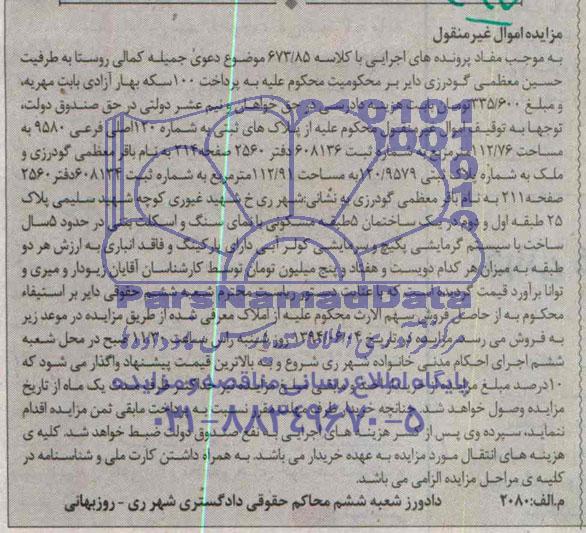 مزایده اموال غیرمنقول
به موجب مفاد پرونده های اجرایی با کلاسه ۶۷۳/۸۵ موضوع دعوی جمیله کمالی روستا به طرفیت
حسین معظمی گودرزی دایر بر محکومیت محکوم علیه به پرداخت ۱۰۰سکه بهار آزادی بابت مهریه،
و مبلغ ۳۳۵/۶۰۰تومان بابت هزینه دادرسی در حق خواهان و نیم عشر دولتی در حق صندوق دولت،
توجها به توقیف اموال غیرمنقول محکوم علیه از پلاک های ثبتی به شماره ۱۲۰اصلی فرعی ۹۵۸۰ به
مساحت ۱۱۲/۷۶مترمربع به شماره ثبت ۶۰۸۱۳۶ دفتر ۲۵۶۰ صفحه۲۱۴ به نام باقر معظمی گودرزی و
ملک به شماره پلاک ثبتی ۱۲۰/۹۵۷۹به مساحت ۱۱۲/۹۱مترمربع به شماره ثبت ۶۰۸۱۳۴دفتر ۲۵۶۰
صفحه۲۱۱ به نام باقر معظمی گودرزی به نشانی:شهر ری خ شهید غیوری کوچه شهید سلیمی پلاک
۲۵ طبقه اول و دوم در یک ساختمان ۵طبقه مسکونی با نمای سنگ و اسکلت بتنی در حدود ۵سال
ساخت با سیستم گرمایشی پکیج و سرمایشی کولر آبی دارای پارکینگ و فاقد انباری به ارزش هر دو
طبقه به میزان هر کدام دویست و هفتاد و پنج میلیون تومان توسط کارشناسان آقایان زیودار و میری و
توانا برآورد قیمت گردیده است که با عنایت دستور ریاست محترم شعبه ششم حقوقی دایر بر استیفاء
محکوم به از حاصل فروش سهم الارث محکوم علیه از املاک معرفی شده از طریق مزایده در موعد زیر
به فروش می رسد مزایده در تاریخ ۱۳۹۴/ روز شنبه راس ساعت ۱۱/۳۰ صبح در محل شعبه
ششم اجرای احکام مدنی خانواده شهر ری شروع و به بالاترین قیمت پیشنهاد واگذار می شود که
۱۰درصد مبلغ مزایده از خریدار و مابقی ظرف مهلت یک ماه از تاریخ
مزایده وصول خواهد شد. چنانچه خریدار ظرف مهلت مقرر نسبت به پرداخت مابقی ثمن مزایده اقدام
ننماید، سپرده وی پس از کسر هزینه های اجرایی به نفع صندوق دولت ضبط خواهد شد. کلیه ی
هزینه های انتقال مورد مزایده به عهده خریدار می باشد. به همراه داشتن کارت ملی و شناسنامه در
کلیه ی مراحل مزایده الزامی می باشد.
م.الف:۲۰۸۰ دادورز شعبه ششم محاکم حقوقی دادگستری شهر ری - روزبهانی
ParsNamadData
پایگاه اطلاع رسانی مناقصه و مزایده
۰۲۱-۸۸۳۴۹۶۷۰-۵